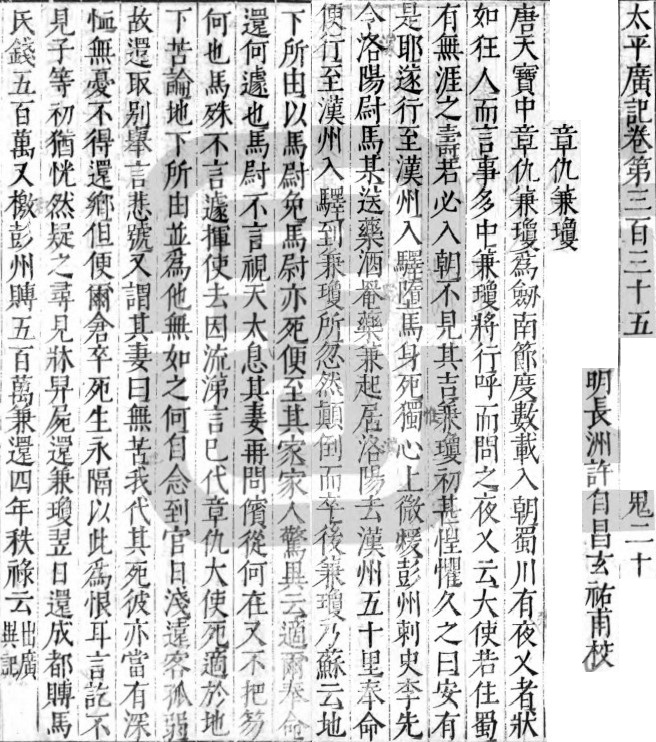 太平廣記卷第三百三十五 鬼二十
明長洲許自昌玄祐甫校
章仇兼瓊
唐天寶中章仇兼瓊爲劒南節度數載入朝蜀川有夜乂者狀
如狂人而言事多中兼瓊將行呼而問之夜乂云大使若住蜀
有無涯之壽若必入朝不見其吉兼瓊初甚惶懼久之曰安有
是耶遂行至漢州入驛墮馬身死獨心上微煖彭州刺史李先
令洛陽尉馬某送藥酒罨藥兼起居洛陽去漢州五十里奉命
便行至漢州入驛到兼瓊所忽然顛倒而卒後兼瓊乃蘇云地
下所由以馬尉免馬尉亦死便至其家家人驚異云適爾奉命
還何遽也馬尉不言視天太息其妻再問儐從何在又不把笏
何也馬殊不言遽揮使去因流涕言巳代章仇大使死適於地
下苦論地下所由並爲他無如之何自念到官日淺遠客孤弱
故還取別舉言悲號又謂其妻曰無苦我代其死彼亦當有深
恤無憂不得還鄉但便爾倉卒死生永隔以此爲恨耳言訖不
見子等初猶恍然疑之尋見牀舁屍還兼瓊翌日還成都賻馬
氏錢五百萬又檄彭州賻五百萬兼還四年秩祿云出廣異記